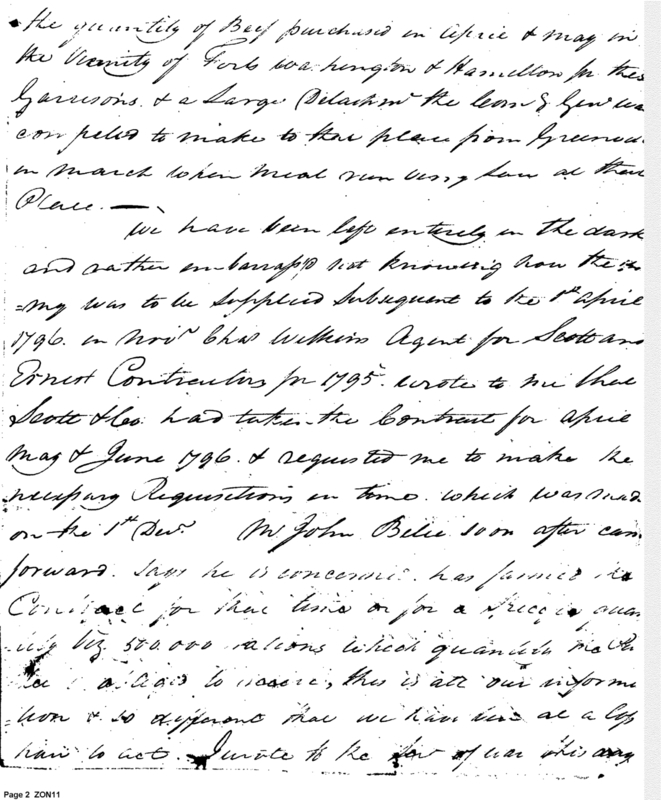 the quantity of Beef purchased in April & May in
the Vicinity of Forts Washington & Hamilton for the
Garrisons & a Large Detachmt the Com g Genl was
compeled to make to that place from Greenv
in March when meat run very Low at that
Place. —
We have been left entirely in the dark
and rather embarrass'd not knowing how the
=my was to be Supplied Subsequent to the 1st April
1796. in Novr Chas Wilkins Agent for Scott and
Ernest Contractors for 1795. wrote to me that
Scott & Co. had taken the Contract for April
May & June 1796. & requested me to make the
necessary Requisitions in time. which was made
on the 1st Decr. Mr John Belie soon after came
forward. Says he is concerned. has farmed the
Contract for that time or for a
Viz 500.000 rations which quantity
to receive, this is all our informa
=tion & so different that we have been at a loss
how to act. I wrote to the Sec of War this
Page 2 ZON11